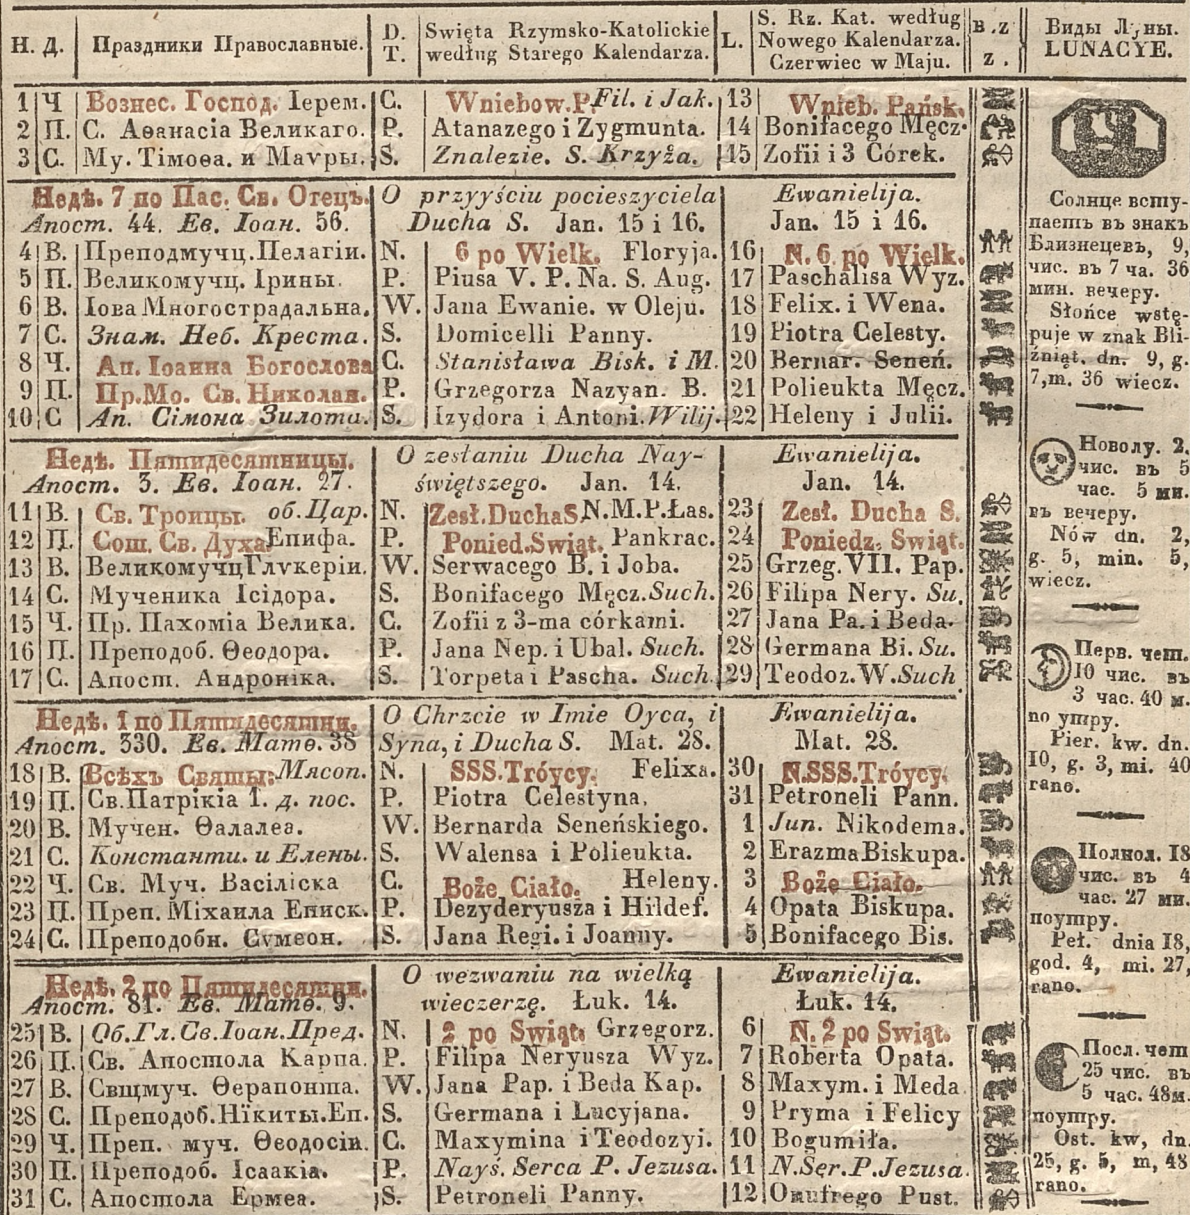 Н. Д. Праздники Православные. D. T. Swięta Rzymsko-Katolickie według Starego Kalendarza. L. S. Rz. Kat. według Nowego Kalendarza. Czerwiec w Maju. B.Z z. Виды Луны. LUNACYE.
1 Ч Вознес. Господ. Іерем. C. Wniebow.P. Fil. i Jak. 13 Wnieb. Pańsk.
2 П. С. Аѳанасія Великаго. P. Atanazego i Zygmunta. 14 Bonifacego Męcz.
3 С. Му. Тімоѳа. и Маѵры. S. Znalezie. S. Krzyża. 15 Zofii i 3 Córek.
Недѣ. 7 по Пас. Св. Отецъ. O przyyściu pocieszyciela Ewanielija.
Апост. 44. Ев. Іоан. 56. Ducha S. Jan. 15 i 16. Jan. 15 i 16.
4 В. Преподмучц. Пелагіи. N. 6 po Wielk. Floryja. 16 N. 6 po Wielk.
5 П. Великомучц. Ірины. P. Piusa V. P. Na. S. Aug. 17 Paschalisa Wyz.
6 В. Іова Многострадальна. W. Jana Ewanie. w Oleju. 18 Felix. i Wena.
7 С. Знам. Неб. Креста. S. Domicelli Panny. 19 Piotra Celesty.
8 Ч. Ап. Іоанна Богослова C. Stanisława Bisk. i M. 20 Bernar. Seneń.
9 П. Пр.Мо. Св. Николая. P. Grzegorza Nazyan. B. 21 Polieukta Męcz.
10 С Ап. Сімона Зилота. S. Izydora i Antoni. Wilij. 22 Heleny i Julii.
Недѣ. Пятидесятницы. O zesłaniu Ducha Nay- Ewanielija.
Апост. 3. Ев. Іоан. 27. świętszego. Jan. 14. Jan. 14.
11 В. Св. Троицы. об. Цар. N. Zesł. Ducha S. N.M.P.Łas. 23 Zesł. Ducha S.
12 П. Сош. Св. Духа Епифа. P. Ponied. Swiąt. Pankrac. 24 Poniedz. Swiąt.
13 В. Великомучц Глѵкеріи. W. Serwacego B. i Joba. 25 Grzeg. VII. Pap.
14 С. Мученика Ісідора. S. Bonifacego Męcz. Such. 26 Filipa Nery. Su.
15 Ч. Пр. Пахомія Велика. C. Zofii z 3-ma córkami. 27 Jana Pa. i Beda.
16 П. Преподоб. Ѳеодора. P. Jana Nep. i Ubal. Such. 28 Germana Bi. Su.
17 С. Апост. Андроніка. S. Torpeta i Pascha. Such. 29 Teodoz. W. Such
Недѣ. 1 по Пятидесятни. O Chrzcie w Imie Oyca, i Ewanielija.
Апост. 330. Ев. Матѳ. 38 Syna, i Ducha S. Mat. 28. Mat. 28.
18 В. Всѣхъ Святы: Мясоп. N. SSS. Tróycy. Felixa. 30 N.SSS. Tróycy.
19 П. Св. Патрікіа 1. д. пос. P. Piotra Celestyna. 31 Petroneli Pann.
20 В. Мучен. Ѳалалеа. W. Bernarda Seneńskiego. 1 Jun. Nikodema.
21 С. Константи. и Елены. S. Walensa i Polieukta. 2 Erazma Biskupa.
22 Ч. Св. Муч. Васіліска C. Boże Ciało. Heleny. 3 Boże Ciało.
23 П. Преп. Міхаила Еписк. P. Dezyderyusza i Hildef. 4 Opata Biskupa.
24 С. Преподобн. Сѵмеон. S. Jana Regi. i Joanny. 5 Bonifacego Bis.
Недѣ. 2 по Пятидесятни. O wezwaniu na wielką Ewanielija.
Апост. 81. Ев. Матѳ. 9. wieczerzę. Łuk. 14. Łuk. 14.
25 В. Об. Гл. Св. Іоан. Пред. N. 2 po Swiąt. Grzegorz. 6 N. 2 po Swiąt.
26 П. Св. Апостола Карпа. P. Filipa Neryusza Wyz. 7 Roberta Opata.
27 В. Свщмуч. Ѳерапонта. W. Jana Pap. i Beda Kap. 8 Maxym. i Meda
28 С. Преподоб. Нікиты. Еп. S. Germana i Lucyjana. 9 Pryma i Felicy
29 Ч. Преп. муч. Ѳеодосіи. C. Maxymina i Teodozyi. 10 Bogumiła.
30 П. Преподоб. Ісаакіа. P. Nayś. Serca P. Jezusa. 11 N. Ser. P. Jezusa.
31 С. Апостола Ермеа. S. Petroneli Panny. 12 Onufrego Pust.
Солнце всту-
паетъ въ знакъ
Близнецевъ, 9,
чис. въ 7 ча. 36
мин. вечеру.
Słońce wstę-
puje w znak Bli-
źniąt. dn. 9, g.
7, m. 36 wiecz.
Новолу. 2.
чис. въ 5
час. 5 ми.
въ вечеру.
Nów dn. 2,
g. 5, min. 5,
wiecz.
Перв. чет.
10 чис. въ
3 час. 40 м.
по утру.
Pier. kw. dn.
10, g. 3, mi. 40
rano.
Полнол. 18
чис. въ 4
час. 27 ми.
поутру.
Peł. dnia 18,
god. 4, mi. 27,
rano.
Посл. чет
25 чис. въ
5 час. 48м.
поутру.
Ost. kw, dn.
25, g. 5, m, 48
rano.